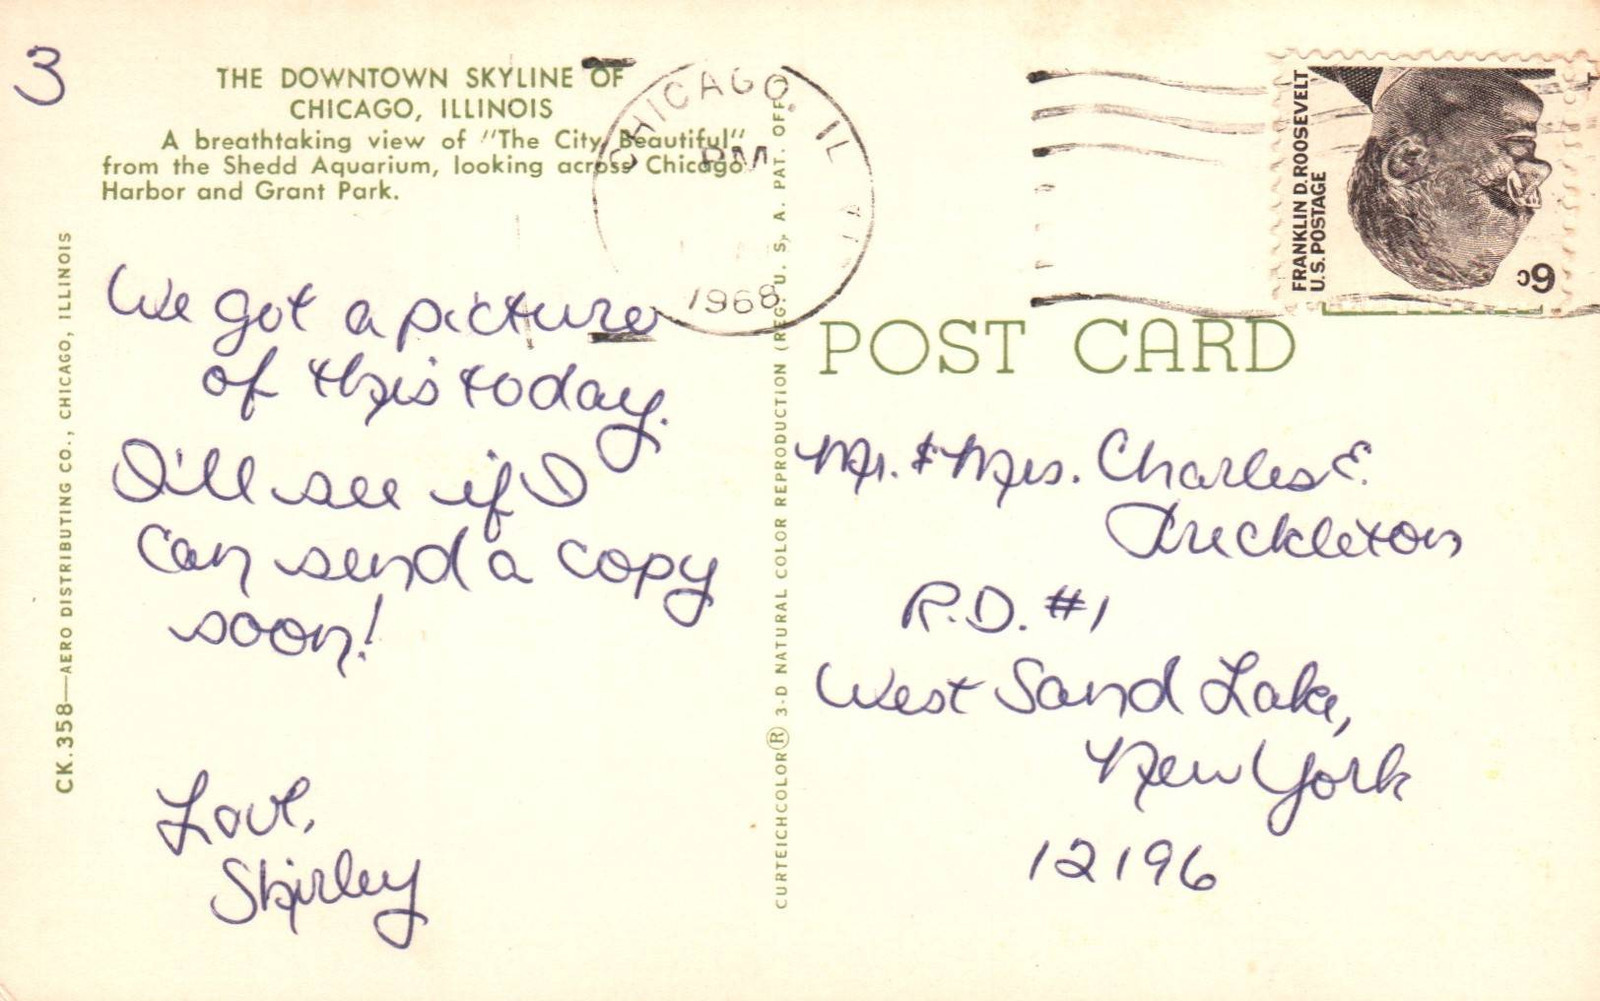 3
THE DOWNTOWN SKYLINE OF
CHICAGO, ILLINOIS
A breathtaking view of "The City Beautiful"
from the Shedd Aquarium, looking across Chicago
Harbor and Grant Park.
We got a picture
of this today.
I'll see if I
can send a copy
soon!
Love,
Shirley
CK.358—AERO DISTRIBUTING CO., CHICAGO, ILLINOIS
CURTEICHCOLOR® 3-D NATURAL COLOR REPRODUCTION (REG. U. S. A. PAT. OFF.)
CHICAGO, IL
PM
1968
FRANKLIN D. ROOSEVELT
U.S. POSTAGE
6c
POST CARD
Mr. & Mrs. Charles E.
R.D. #1
West Sand Lake,
New York
12196